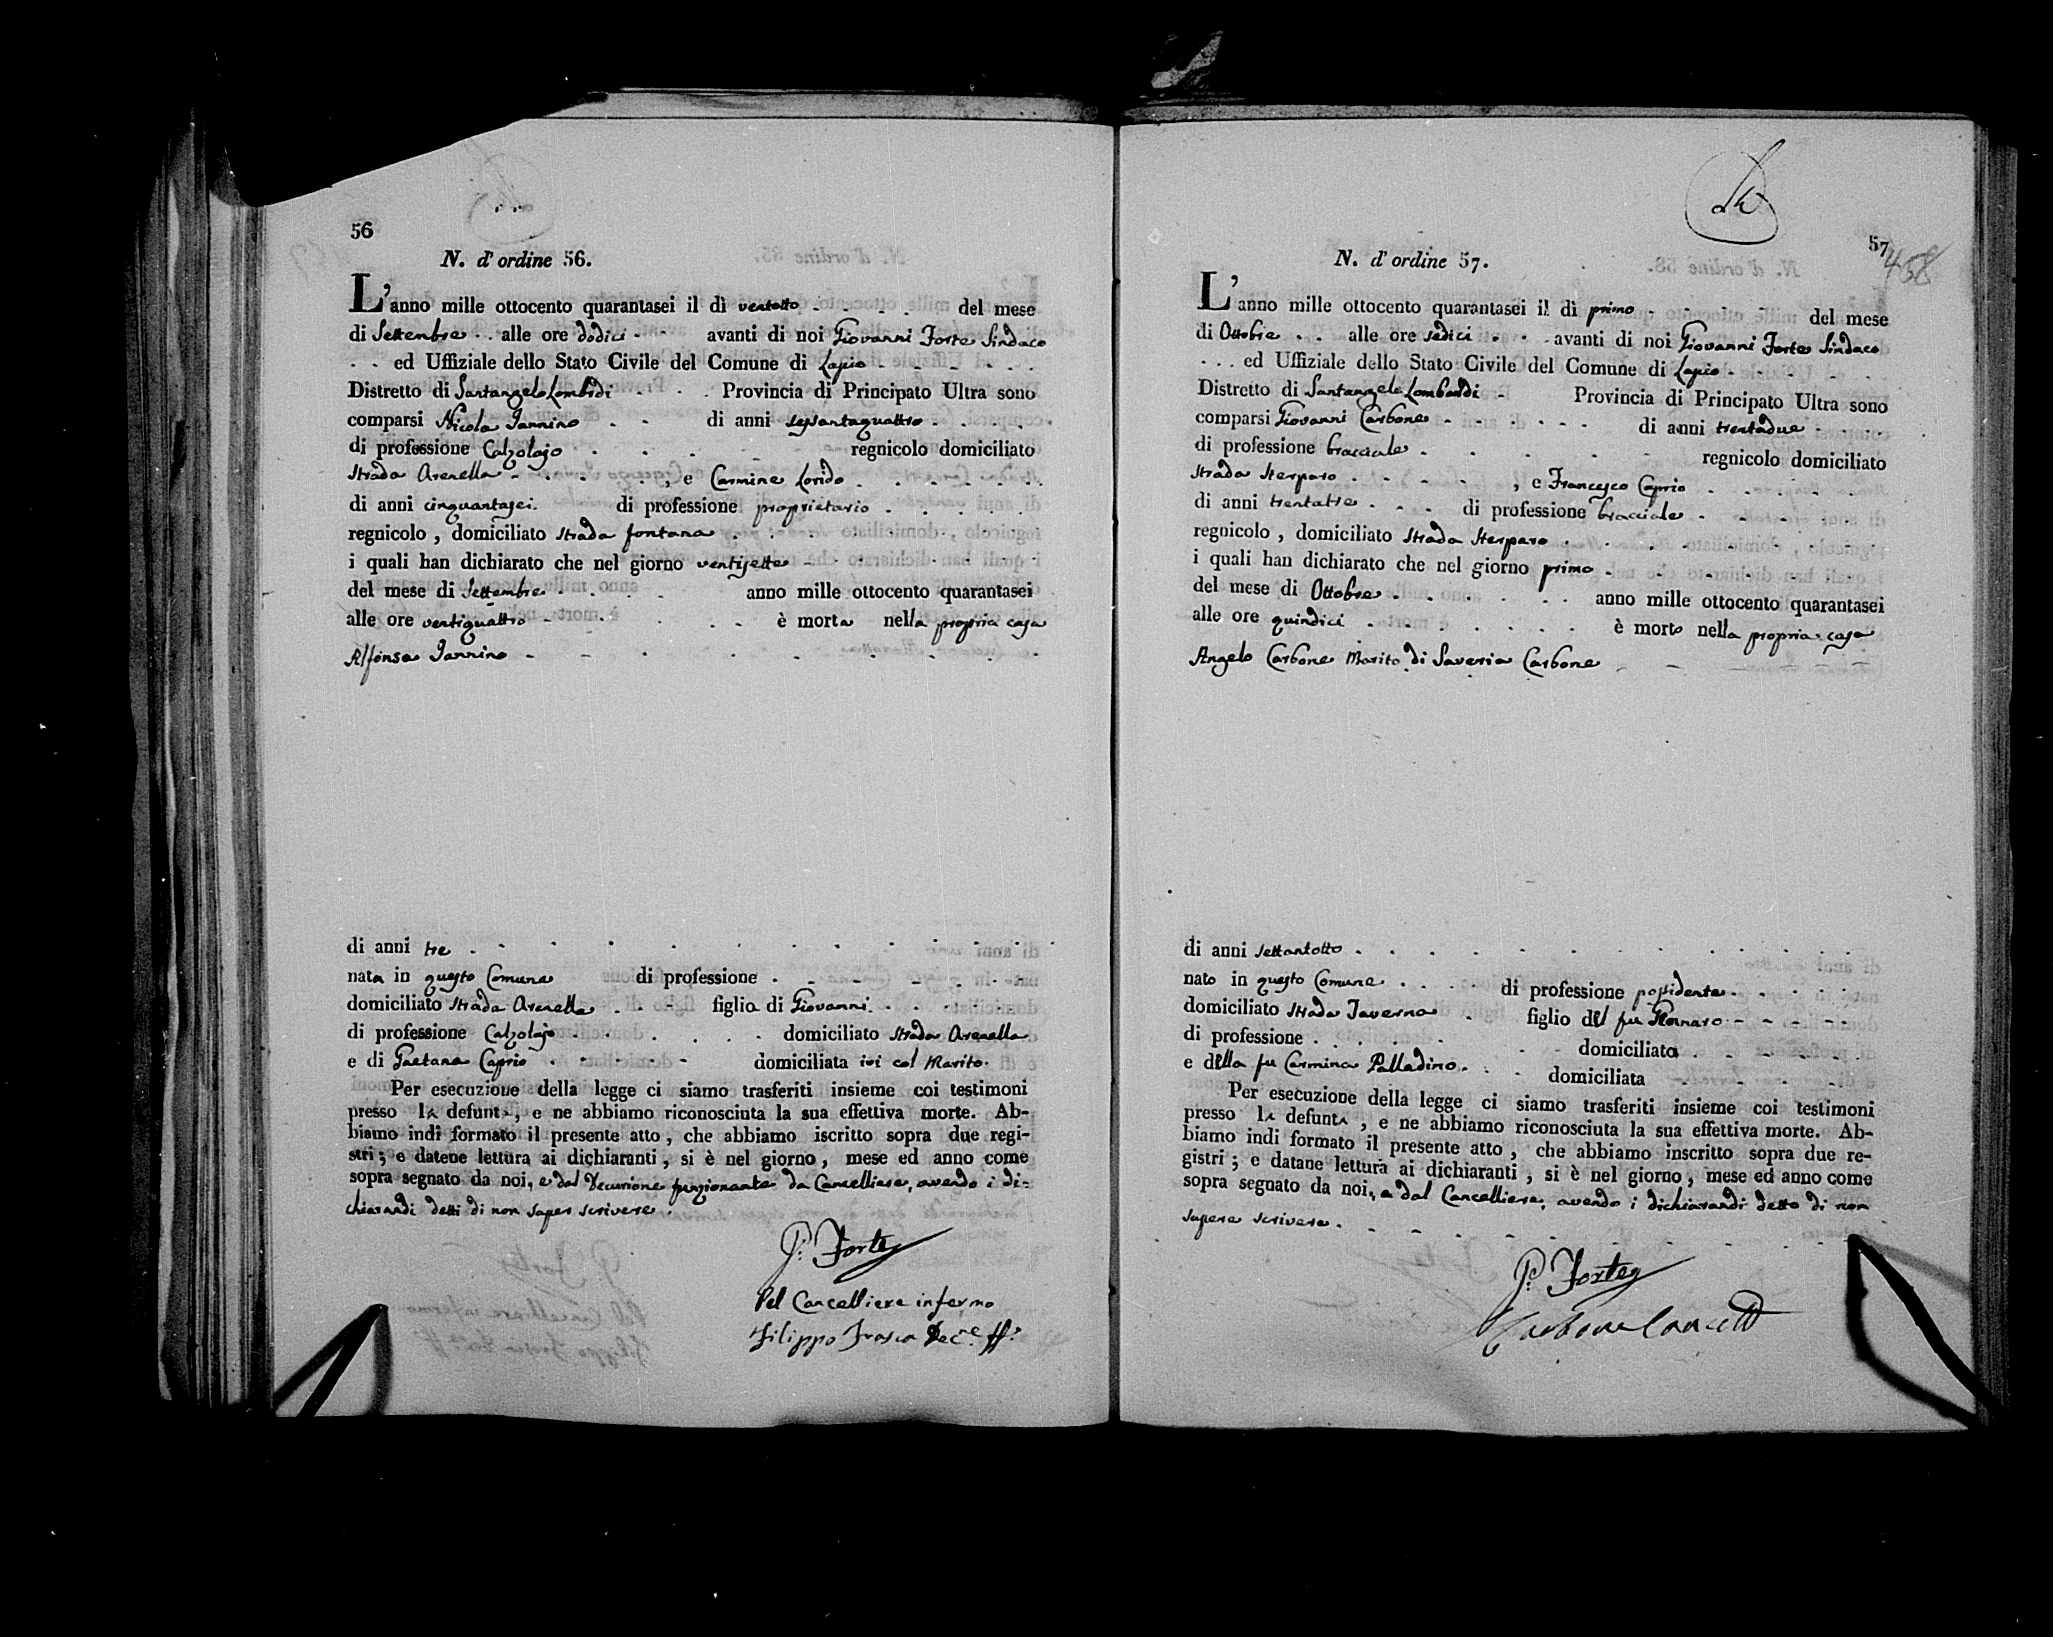 56
N. d' ordine 56.
L'anno mille ottocento quarantasei il dì ventotto del mese
di Settembre alle ore dodici avanti di noi Giovanni Forte Sindaco
ed Uffiziale dello Stato Civile del Comune di Lapio
Distretto di Santangelo Lombardi Provincia di Principato Ultra sono
comparsi Nicola Iannino di anni sessantaquattro
di professione Calzolajo regnicolo domiciliato
Strada Arenella , e Carmine Lorido
di anni cinquantasei di professione proprietario
regnicolo , domiciliato Strada fontana
i quali han dichiarato che nel giorno ventisette
del mese di Settembre anno mille ottocento quarantasei
alle ore ventiquattro è morta nella propria casa
Alfonsa Iannino
di anni tre
nata in questo Comune di professione
domiciliato Strada Arenella figlia di Giovanni
di professione Calzolajo domiciliato Strada Arenella
e di Gaetana Caprio domiciliata ivi col Marito
Per esecuzione della legge ci siamo trasferiti insieme coi testimoni
presso la defunta, e ne abbiamo riconosciuta la sua effettiva morte. Ab-
biamo indi formato il presente atto , che abbiamo iscritto sopra due regi-
stri ; e datene lettura ai dichiaranti , si è nel giorno , mese ed anno come
sopra segnato da noi, e dal Decurione funzionante da Cancelliere, avendo i di=
chiarandi detti di non saper scrivere.
G. Forte
Pel Cancelliere infermo
Filippo Frasca Dec.ne ff.
57
458
N. d' ordine 57.
L'anno mille ottocento quarantasei il dì primo del mese
di Ottobre alle ore sedici avanti di noi Giovanni Forte Sindaco
ed Uffiziale dello Stato Civile del Comune di Lapio
Distretto di Santangelo Lombardi Provincia di Principato Ultra sono
comparsi Giovanni Carbone di anni trentadue
di professione bracciale regnicolo domiciliato
Strada Sterparo , e Francesco Caprio
di anni trentatre di professione bracciale
regnicolo , domiciliato Strada Sterparo
i quali han dichiarato che nel giorno primo
del mese di Ottobre anno mille ottocento quarantasei
alle ore quindici è morto nella propria casa
Angelo Carbone Marito di Saveria Carbone
di anni settantotto
nato in questo Comune di professione possidente
domiciliato Strada Taverna figlio del fu Gennaro
di professione domiciliato
e della fu Carmina Palladino domiciliata
Per esecuzione della legge ci siamo trasferiti insieme coi testimoni
presso la defunta , e ne abbiamo riconosciuta la sua effettiva morte. Ab-
biamo indi formato il presente atto , che abbiamo inscritto sopra due re-
gistri ; e datane lettura ai dichiaranti , si è nel giorno , mese ed anno come
sopra segnato da noi, e dal Cancelliere, avendo i dichiarandi detto di non
sapere scrivere.
G. Forte
Carbone Cancell